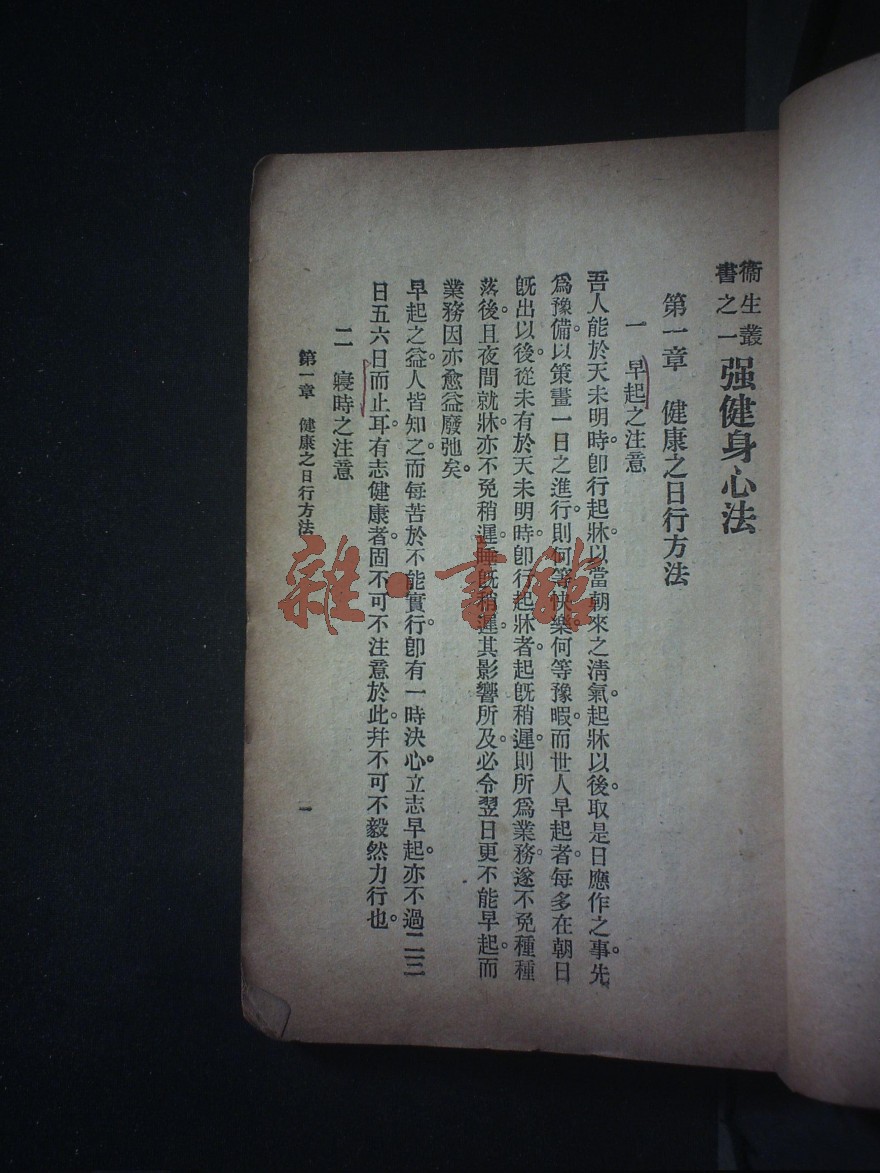 衞生叢書之一 强健身心法
第一章 健康之日行方法
一 早起之注意
吾人能於天未明時。卽行起牀。以當朝來之淸氣。起牀以後。取是日應作之事。先
爲豫備。以策畫一日之進行。則何等快樂。何等豫暇。而世人早起者。每多在朝日
旣出以後。從未有於天未明時。卽行起牀者。起旣稍遲。則所爲業務。遂不免種種
落後。且夜間就牀。亦不免稍遲。睡旣稍遲。其影響所及。必令翌日更不能早起。而
業務因亦愈益廢弛矣。
早起之益。人皆知之。而每苦於不能實行。卽有一時決心。立志早起。亦不過二三
日五六日而止耳。有志健康者。固不可不注意於此。幷不可不毅然力行也。
二 寢時之注意
第一章 健康之日行方法
一
雜·書館